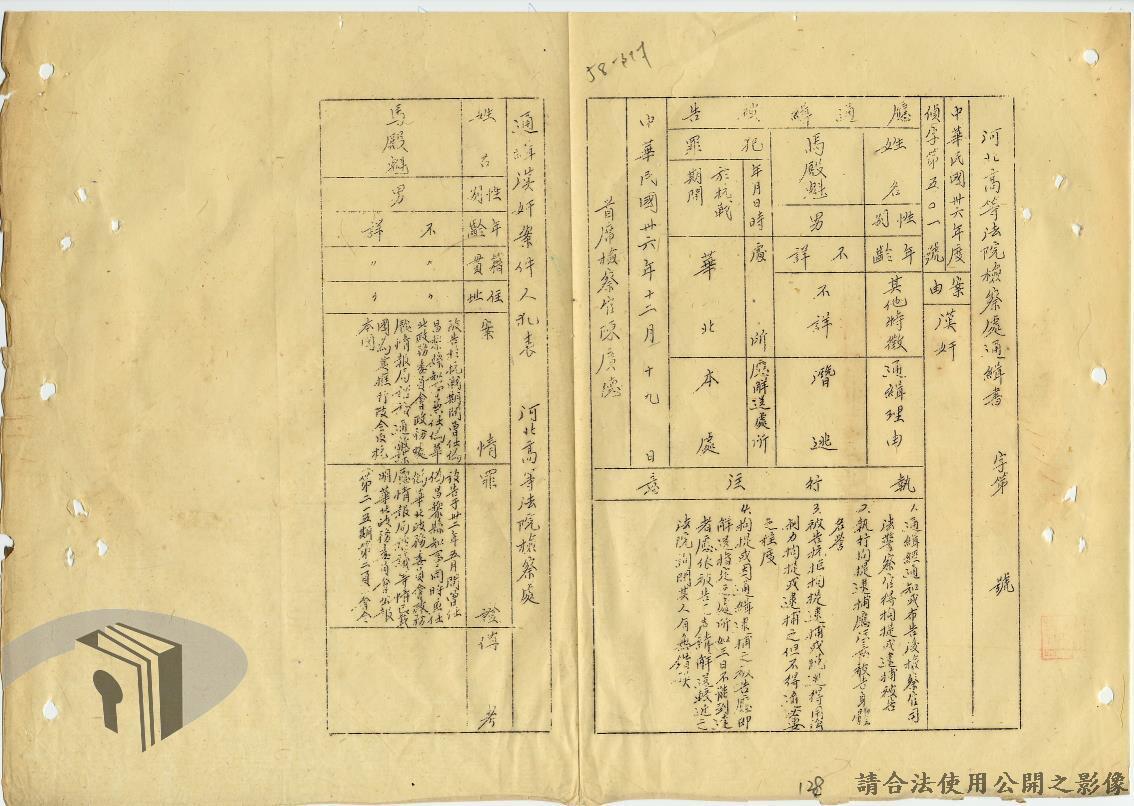 58-
河北高等法院檢察處通緝書 字第 號
中華民國卅六年度
偵字第五〇一號
案由
漢奸
應通緝被告
姓名 性別 年齡 其他特徵 通緝理由
馬殿魁 男 不詳 不詳 潛逃
犯罪 年月日時 處所 應解送處所
於抗戰期間 華北 本處
中華民國卅六年十二月十九日
首席檢察官陳廣德
執行注意
1.通緝經通知或布告後檢察官司
法警察官得拘提或逮捕被告
2.執行拘提逮捕應注意被告身體
名譽
3.被告抗拒拘提逮捕或脫逃得用強
制力拘提或逮捕之但不得逾必要
之程度
4.拘提或因通緝逮捕之被告應即
解送指定之處所如三日不能到達
者應依被告之聲請解送較近之
法院詢問其人有無錯誤
通緝漢奸案件人犯表 河北高等法院檢察處
姓名 性別 年齡 籍貫 住址 案情 罪證 備考
馬殿魁 男 不詳 〃 〃 〃 〃
被告於抗戰期間曾任偽
昌黎縣知事兼任偽華
北政務委員會政務
廳情報局
本國
被告于卅二年五月間曾任
偽昌黎縣知事同時兼任
偽華北政務委員會政務
廳情報局
明華北政務委員會公報
第二一五期第二頁
128
請合法使用公開之影像